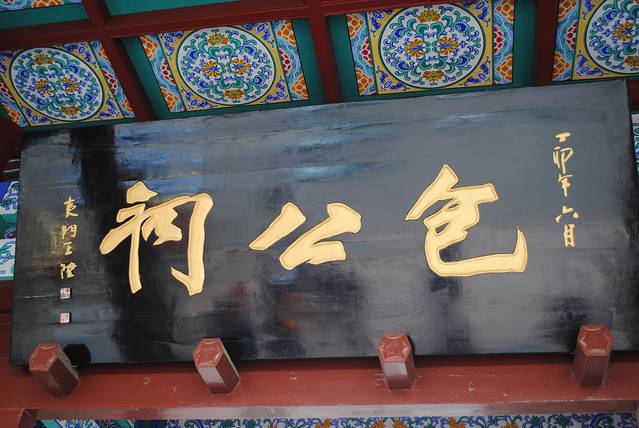 丁卯年六月
包公祠
夷門王澄